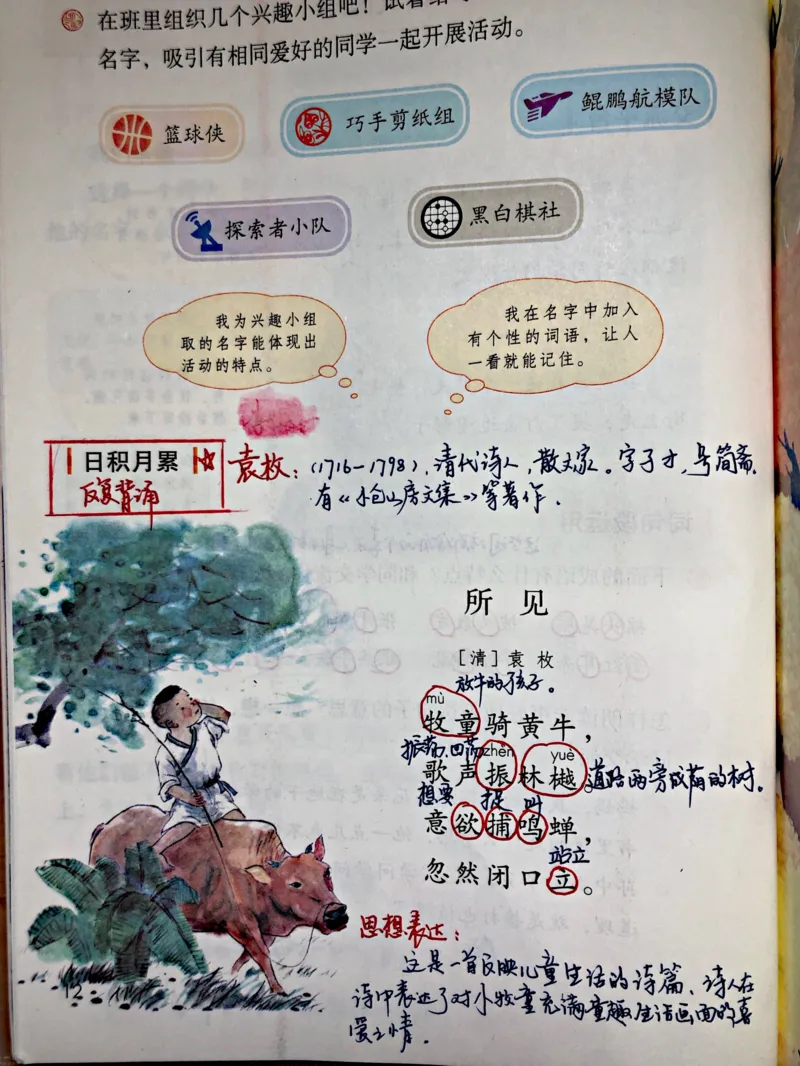 在班里组织几个兴趣小组吧！试着给
名字，吸引有相同爱好的同学一起开展活动。
篮球侠
巧手剪纸组
鲲鹏航模队
探索者小队
黑白棋社
我为兴趣小组
取的名字能体现出
活动的特点。
我在名字中加入
有个性的词语，让人
一看就能记住。
日积月累
反复背诵
袁枚：(1716-1798)，清代诗人，散文家。字子才，号简斋，
有《小仓山房文集》等著作．
所见
［清］袁枚
放牛的孩子。
mù
牧童骑黄牛，
振荡、回荡 zhèn yuè
歌声振林樾。道路两旁成荫的树。
想要 捉 叫
意欲捕鸣蝉，
站立
忽然闭口立。
思想表达：
这是一首反映儿童生活的诗篇，诗人在
诗中表达了对小牧童充满童趣生活画面的喜
爱之情．
12